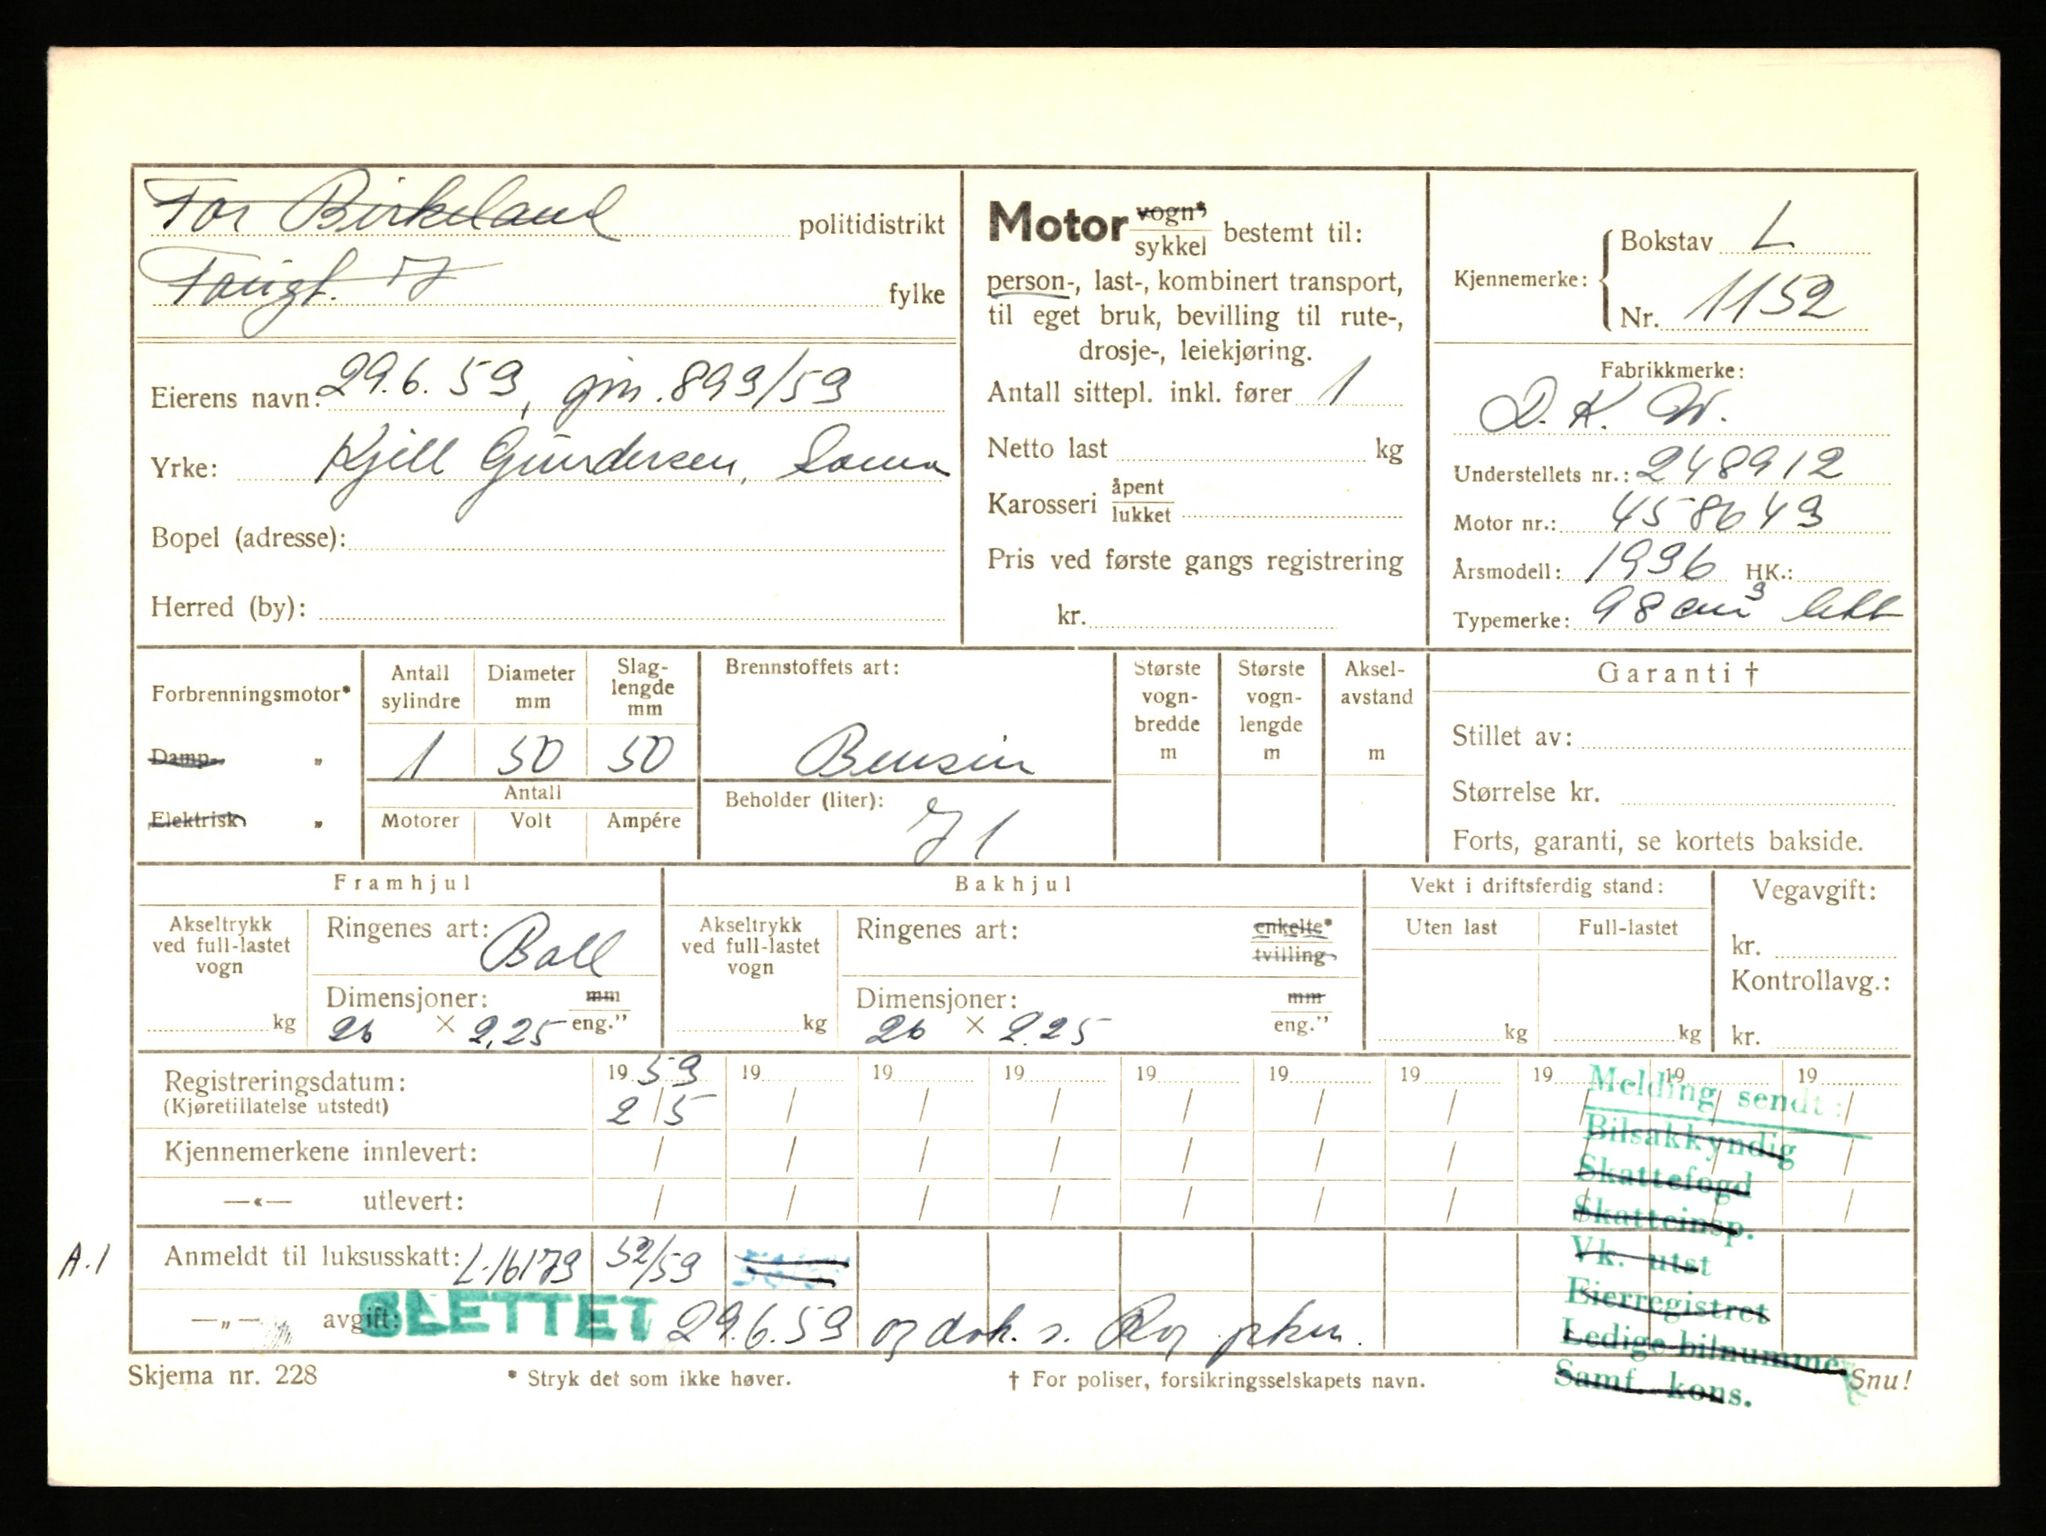 Tor Birkeland politidistrikt
Tangt. 7 fylke
Eierens navn: 29.6.59, gjm. 893/59
Yrke: Kjell Gundersen, Soma
Bopel (adresse):
Herred (by):
Motor vogn* sykkel bestemt til:
person-, last-, kombinert transport,
til eget bruk, bevilling til rute-,
drosje-, leiekjøring.
Antall sittepl. inkl. fører 1
Netto last kg
Karosseri åpent lukket
Pris ved første gangs registrering
kr.
Kjennemerke: Bokstav L
Nr. 1152
Fabrikkmerke:
D.K.W.
Understellets nr.: 248912
Motor nr.: 458643
Årsmodell: 1936 HK.:
Typemerke: 98 cm³ lett
Forbrenningsmotor*
Damp. „
Elektrisk „
Antall sylindre
Diameter mm
Slag-lengde mm
1 50 50
Antall
Motorer Volt Ampére
Brennstoffets art:
Bensin
Beholder (liter):
7 l
Største vogn-bredde m
Største vogn-lengde m
Aksel-avstand m
Garanti †
Stillet av:
Størrelse kr.
Forts, garanti, se kortets bakside.
Framhjul
Akseltrykk ved full-lastet vogn
kg
Ringenes art: Ball
Dimensjoner: mm
26 × 2.25 eng."
Bakhjul
Akseltrykk ved full-lastet vogn
kg
Ringenes art: enkelte* tvilling
Dimensjoner: mm
26 × 2.25 eng."
Vekt i driftsferdig stand:
Uten last Full-lastet
kg kg
Vegavgift:
kr.
Kontrollavg.:
kr.
Registreringsdatum: 1959 19 19 19 19 19 19 19 19 19
(Kjøretillatelse utstedt) 2/5 / / / / / / / / /
Kjennemerkene innlevert: / / / / / / / / / /
—«— utlevert: / / / / / / / / / /
A.1 Anmeldt til luksusskatt: L-16179 52/59
—„— avgift: SLETTET 29.6.59 og dok. s. Rog. pkm.
Melding sendt:
Bilsakkyndig
Skattefogd
Skatteinsp.
Vk. utst
Eierregistret
Ledige bilnumme
Samf. kons.
Skjema nr. 228 * Stryk det som ikke høver. † For poliser, forsikringsselskapets navn. Snu!